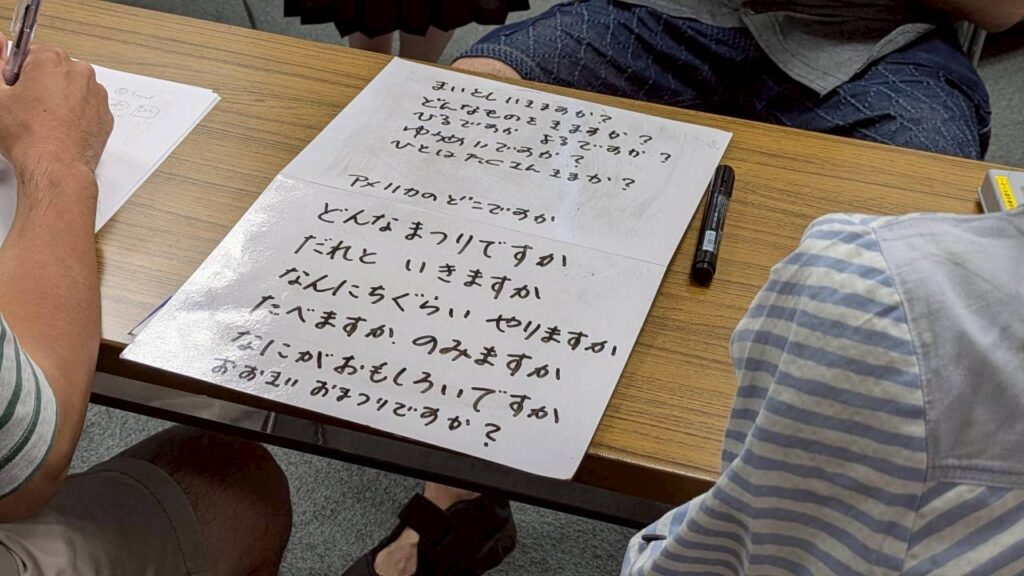 まいとし いきますか?
どんなものを きますか?
ひるですか よるですか?
ゆうめいですか?
ひとは たくさん きますか?
アメリカの どこですか
どんな まつりですか
だれと いきますか
なんにちぐらい やりますか
たべますか. のみますか
なにがおもしろいですか
おおきい おまつりですか?